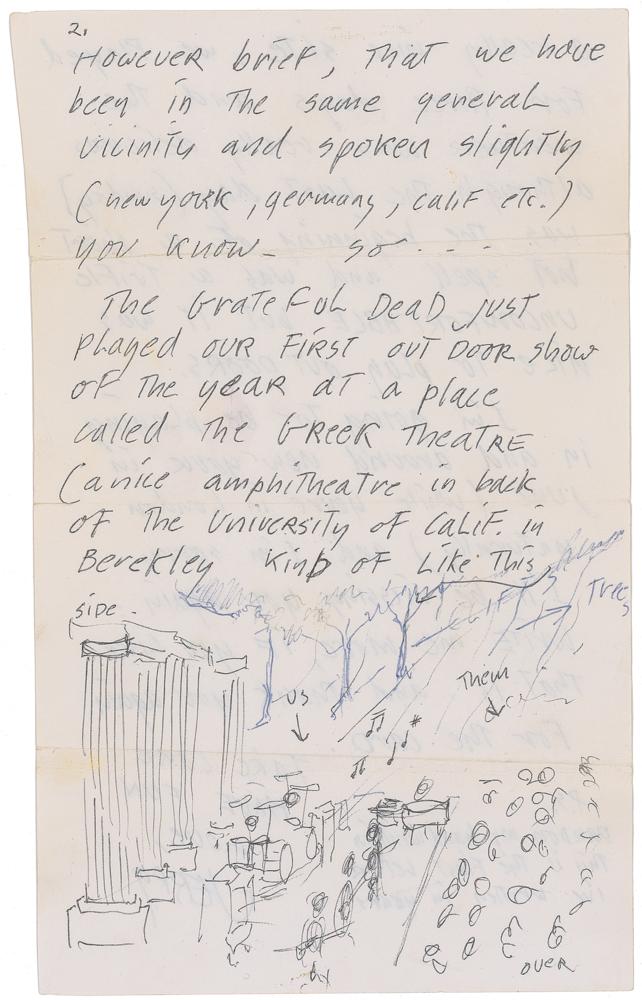 2.
However brief, That we have
been in The same general
vicinity and spoken slightly
(new york, germany, calif etc.)
you know - so - - -
The Grateful Dead just
played our first out door show
of The year at a place
called The Greek Theatre
(a nice amphitheatre in back
of The University of Calif. in
Berekley Kind of Like This,
side.
Trees
Them
us
over